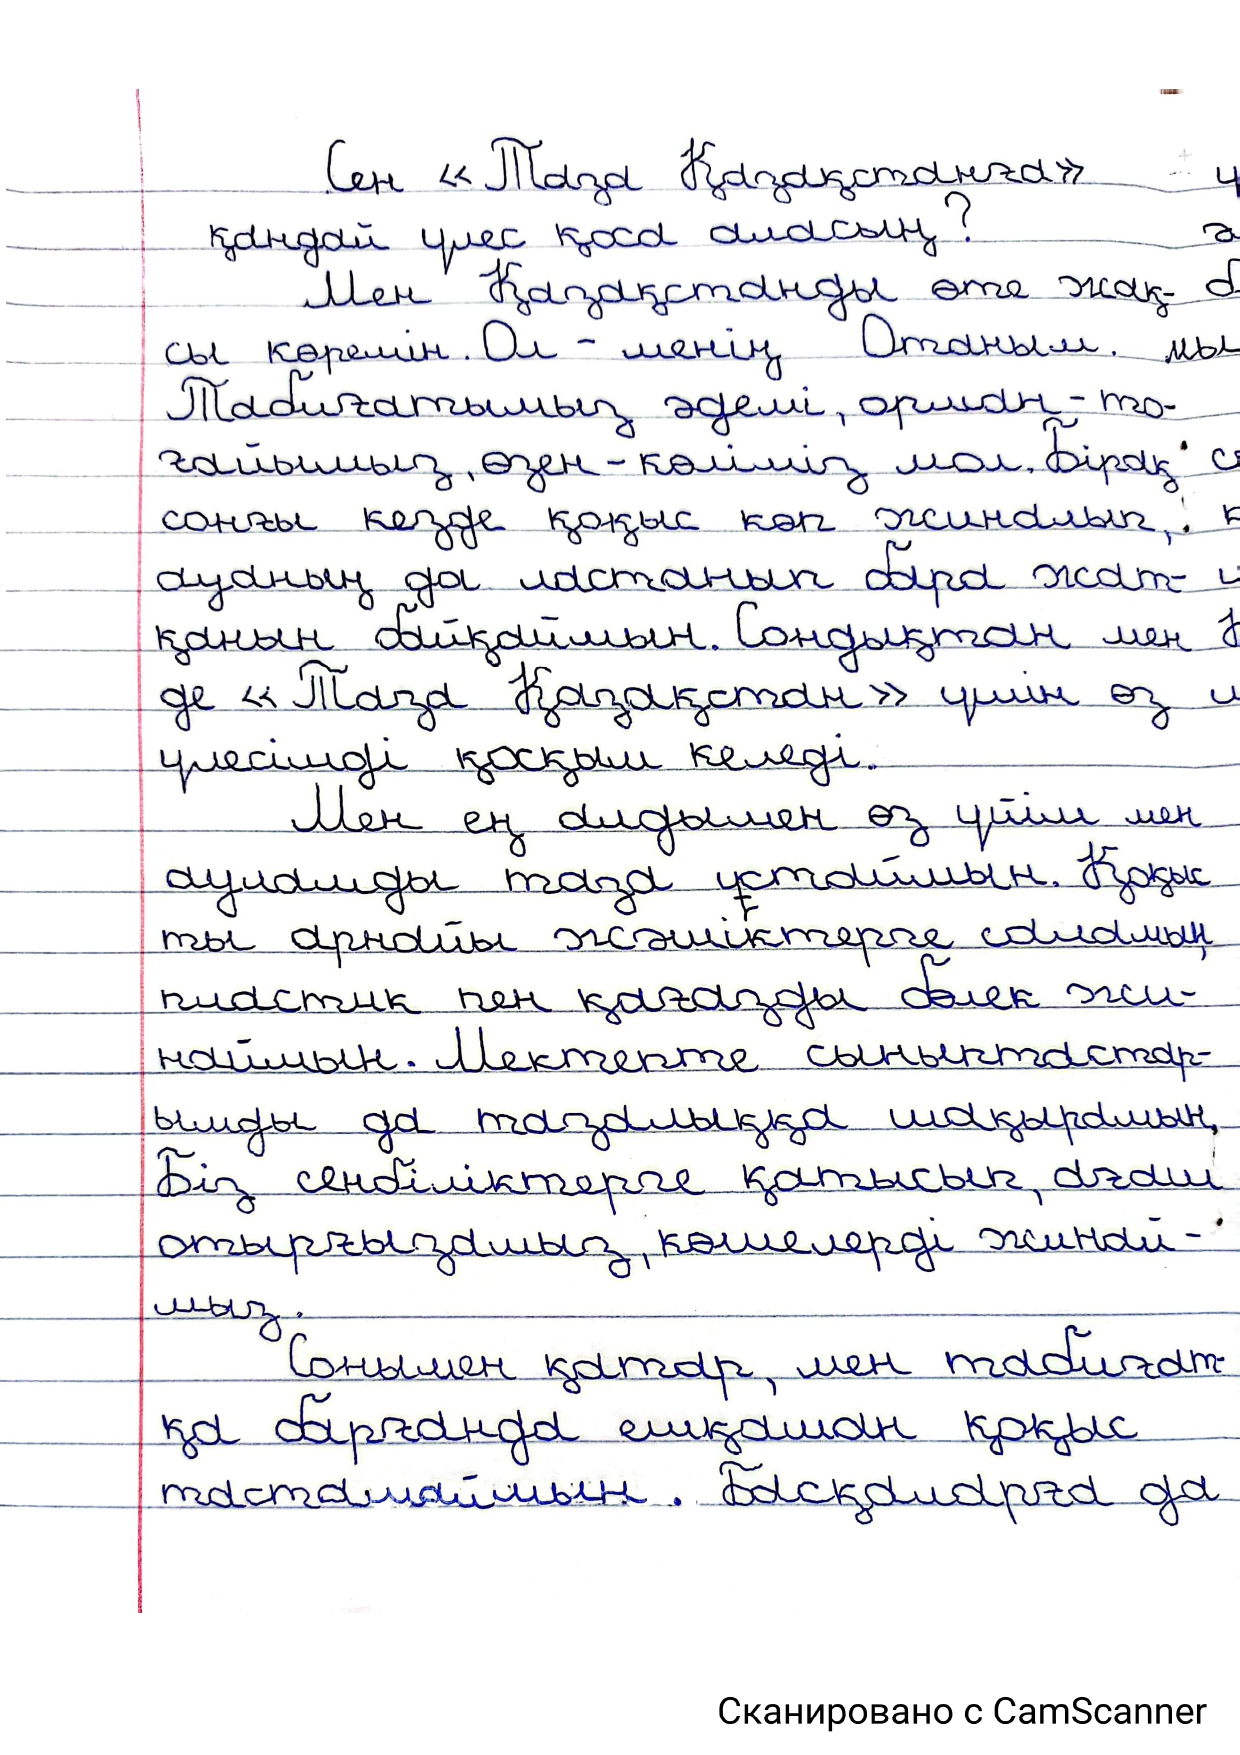 Сен «Таза Қазақстанға»
қандай үлес қоса аласың?
Мен Қазақстанды өте жақ-
сы көремін. Ол - менің Отаным.
Табиғатымыз әдемі, орман-то-
ғайымыз, өзен-көліміз мол. Бірақ
соңғы кезде қоқыс көп жиналып,
ауаның да ластанып бара жат-
қанын байқаймын. Сондықтан мен
де «Таза Қазақстан» үшін өз
үлесімді қосқым келеді.
Мен ең алдымен өз үйім мен
ауламды таза ұстаймын. Қоқыс
ты арнайы жәшіктерге саламын,
пластик пен қағазды бөлек жи-
наймын. Мектепте сыныптастар-
ымды да тазалыққа шақырамын.
Біз сенбіліктерге қатысып, ағаш
отырғызамыз, көшелерді жинай-
мыз.
Сонымен қатар, мен табиғат-
қа барғанда ешқашан қоқыс
тастамаймын. Басқаларға да
Сканировано с CamScanner